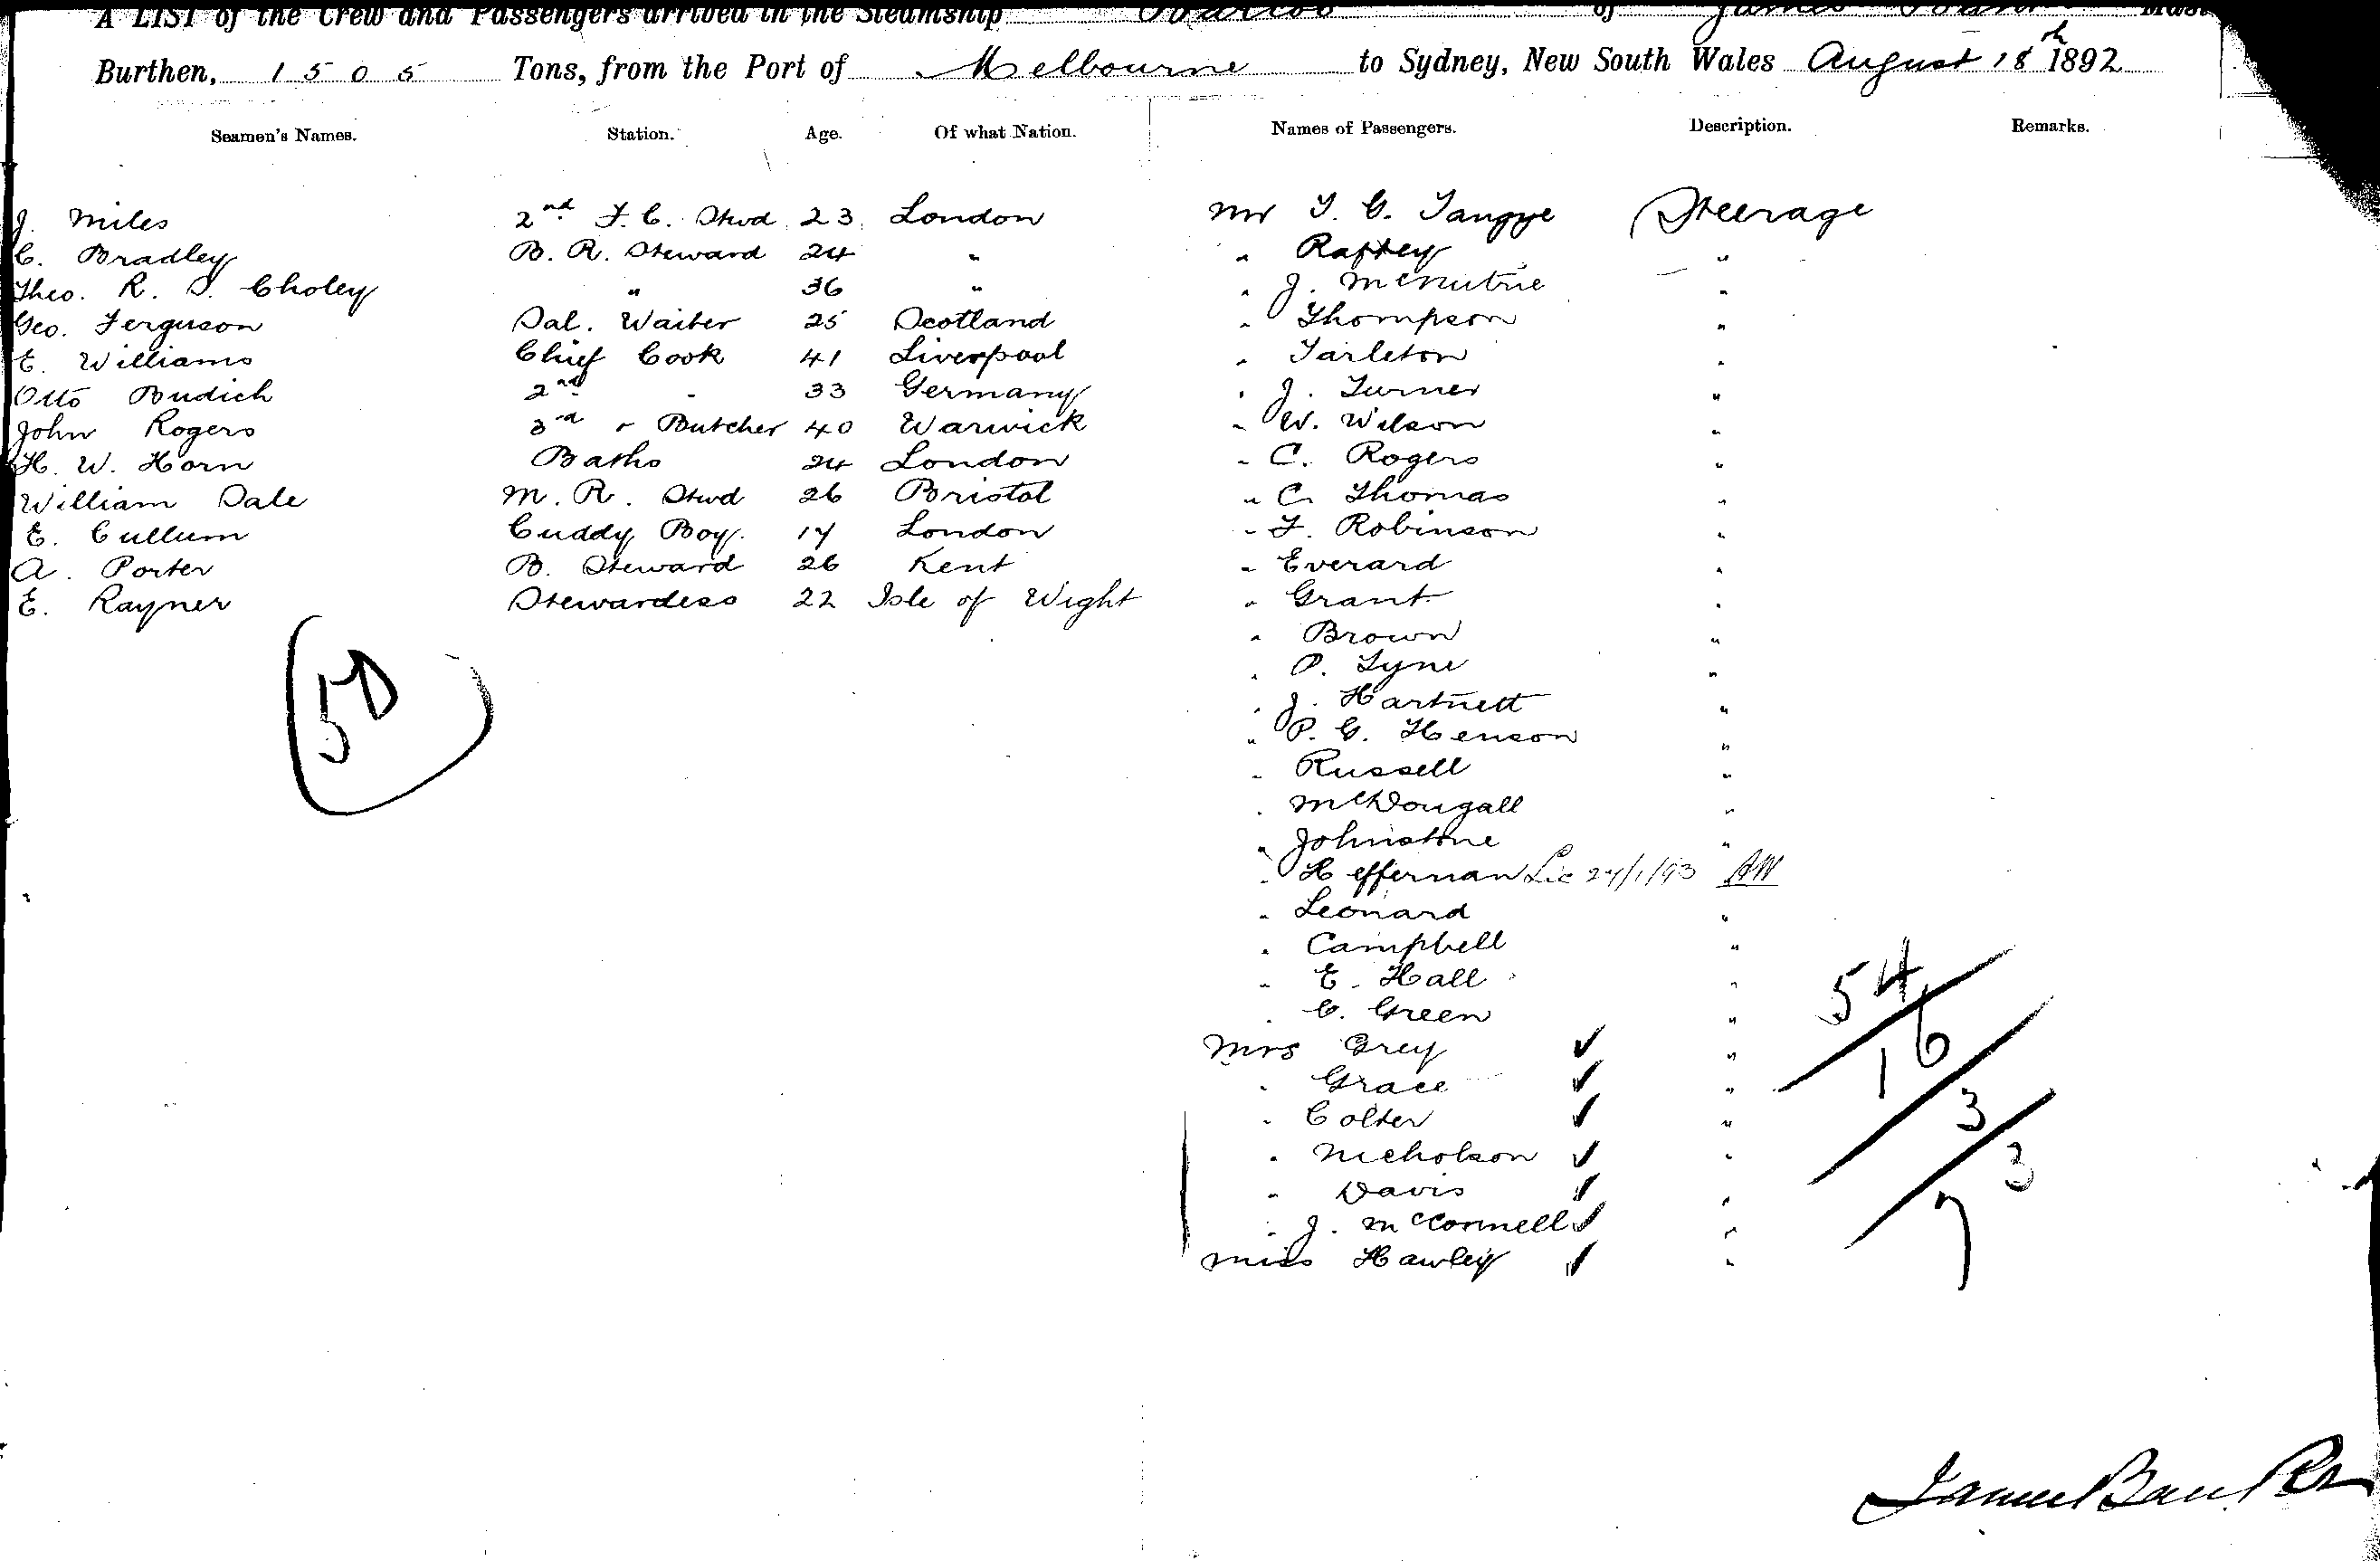 A LIST of the Crew and Passengers arrived in the Steamship of James
Burthen, 1505 Tons, from the Port of Melbourne to Sydney, New South Wales August 18th 1892
Seamen's Names. Station. Age. Of what Nation. Names of Passengers. Description. Remarks.
J. Miles 2nd F. C. Stwd 23 London Mr T. G. Tangye Steerage
C. Bradley B. R. Steward 24 " " "
Theo. R. S. Choley " 36 " " J. "
Geo. Ferguson Sal. Waiter 25 Scotland " Thompson "
E. Williams Chief Cook 41 Liverpool " Tarleton "
Otto Budich 2nd " 33 Germany " J. Turner "
John Rogers 3rd " Butcher 40 Warwick " W. Wilson "
H. W. Horn Baths 24 London " C. Rogers "
William Dale M. R. Stwd 26 Bristol " C. Thomas "
E. Cullum Cuddy Boy. 17 London " F. Robinson "
A. Porter B. Steward 26 Kent " Everard "
E. Rayner Stewardess 22 Isle of Wight " Grant "
" Brown "
" P. Lyne "
" J. Hartnett "
" P. G. Henson "
" Russell "
" McDougall "
" Johnstone "
" Heffernan Lic 24/1/93
" Leonard "
" Campbell "
" E. Hall "
" C. Green "
Mrs Grey ✓ "
" Grace ✓ "
" Colter ✓ "
" Nicholson ✓ "
" Davis ✓ "
" J. McConnell ✓ "
Miss Hawley ✓ "
(50)
54/
16/
3/
3
7